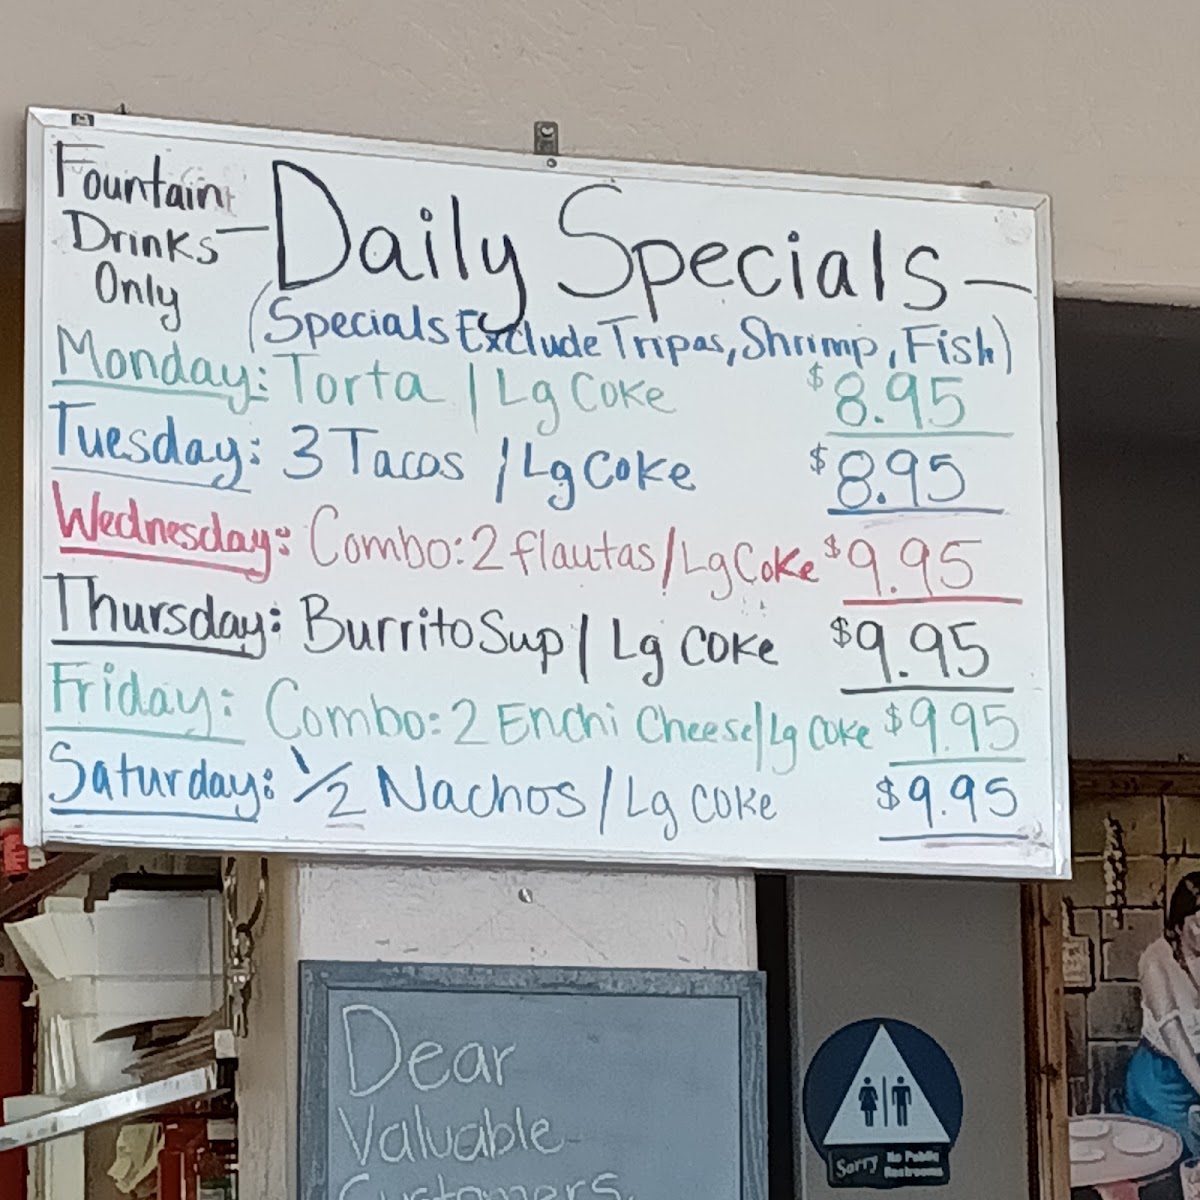 Fountain
Drinks
Only
— Daily Specials —
(Specials Exclude Tripas, Shrimp, Fish)
Monday: Torta / Lg Coke $8.95
Tuesday: 3 Tacos / Lg Coke $8.95
Wednesday: Combo: 2 flautas / Lg Coke $9.95
Thursday: Burrito Sup / Lg Coke $9.95
Friday: Combo: 2 Enchi Cheese / Lg Coke $9.95
Saturday: 1/2 Nachos / Lg Coke $9.95
Dear
Valuable
Customers,
Sorry No Public
Restrooms